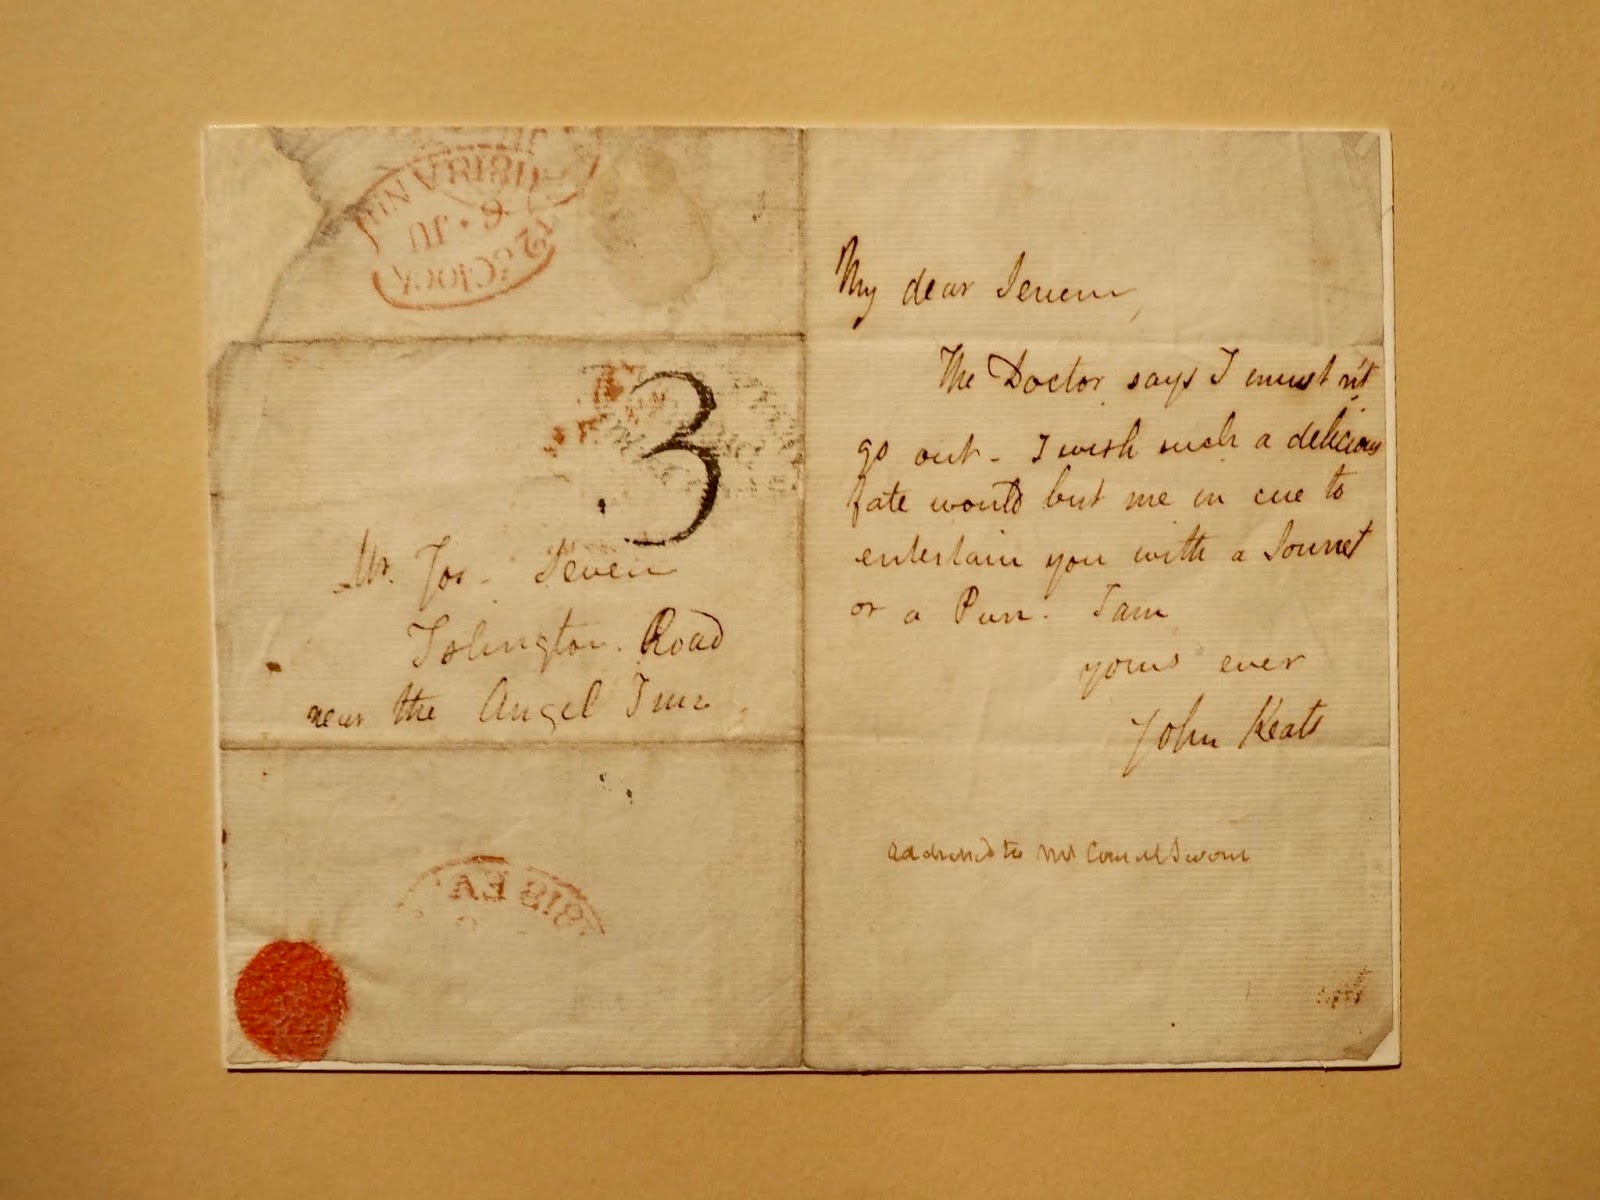 3
Mr. Jos. Severn
Islington Road
near the Angel Inn.
My dear Severn,
The Doctor says I mustn't
go out. I wish such a delicious
fate would but me in cue to
entertain you with a Sonnet
or a Pun. I am
yours ever
John Keats
addressed to Mr